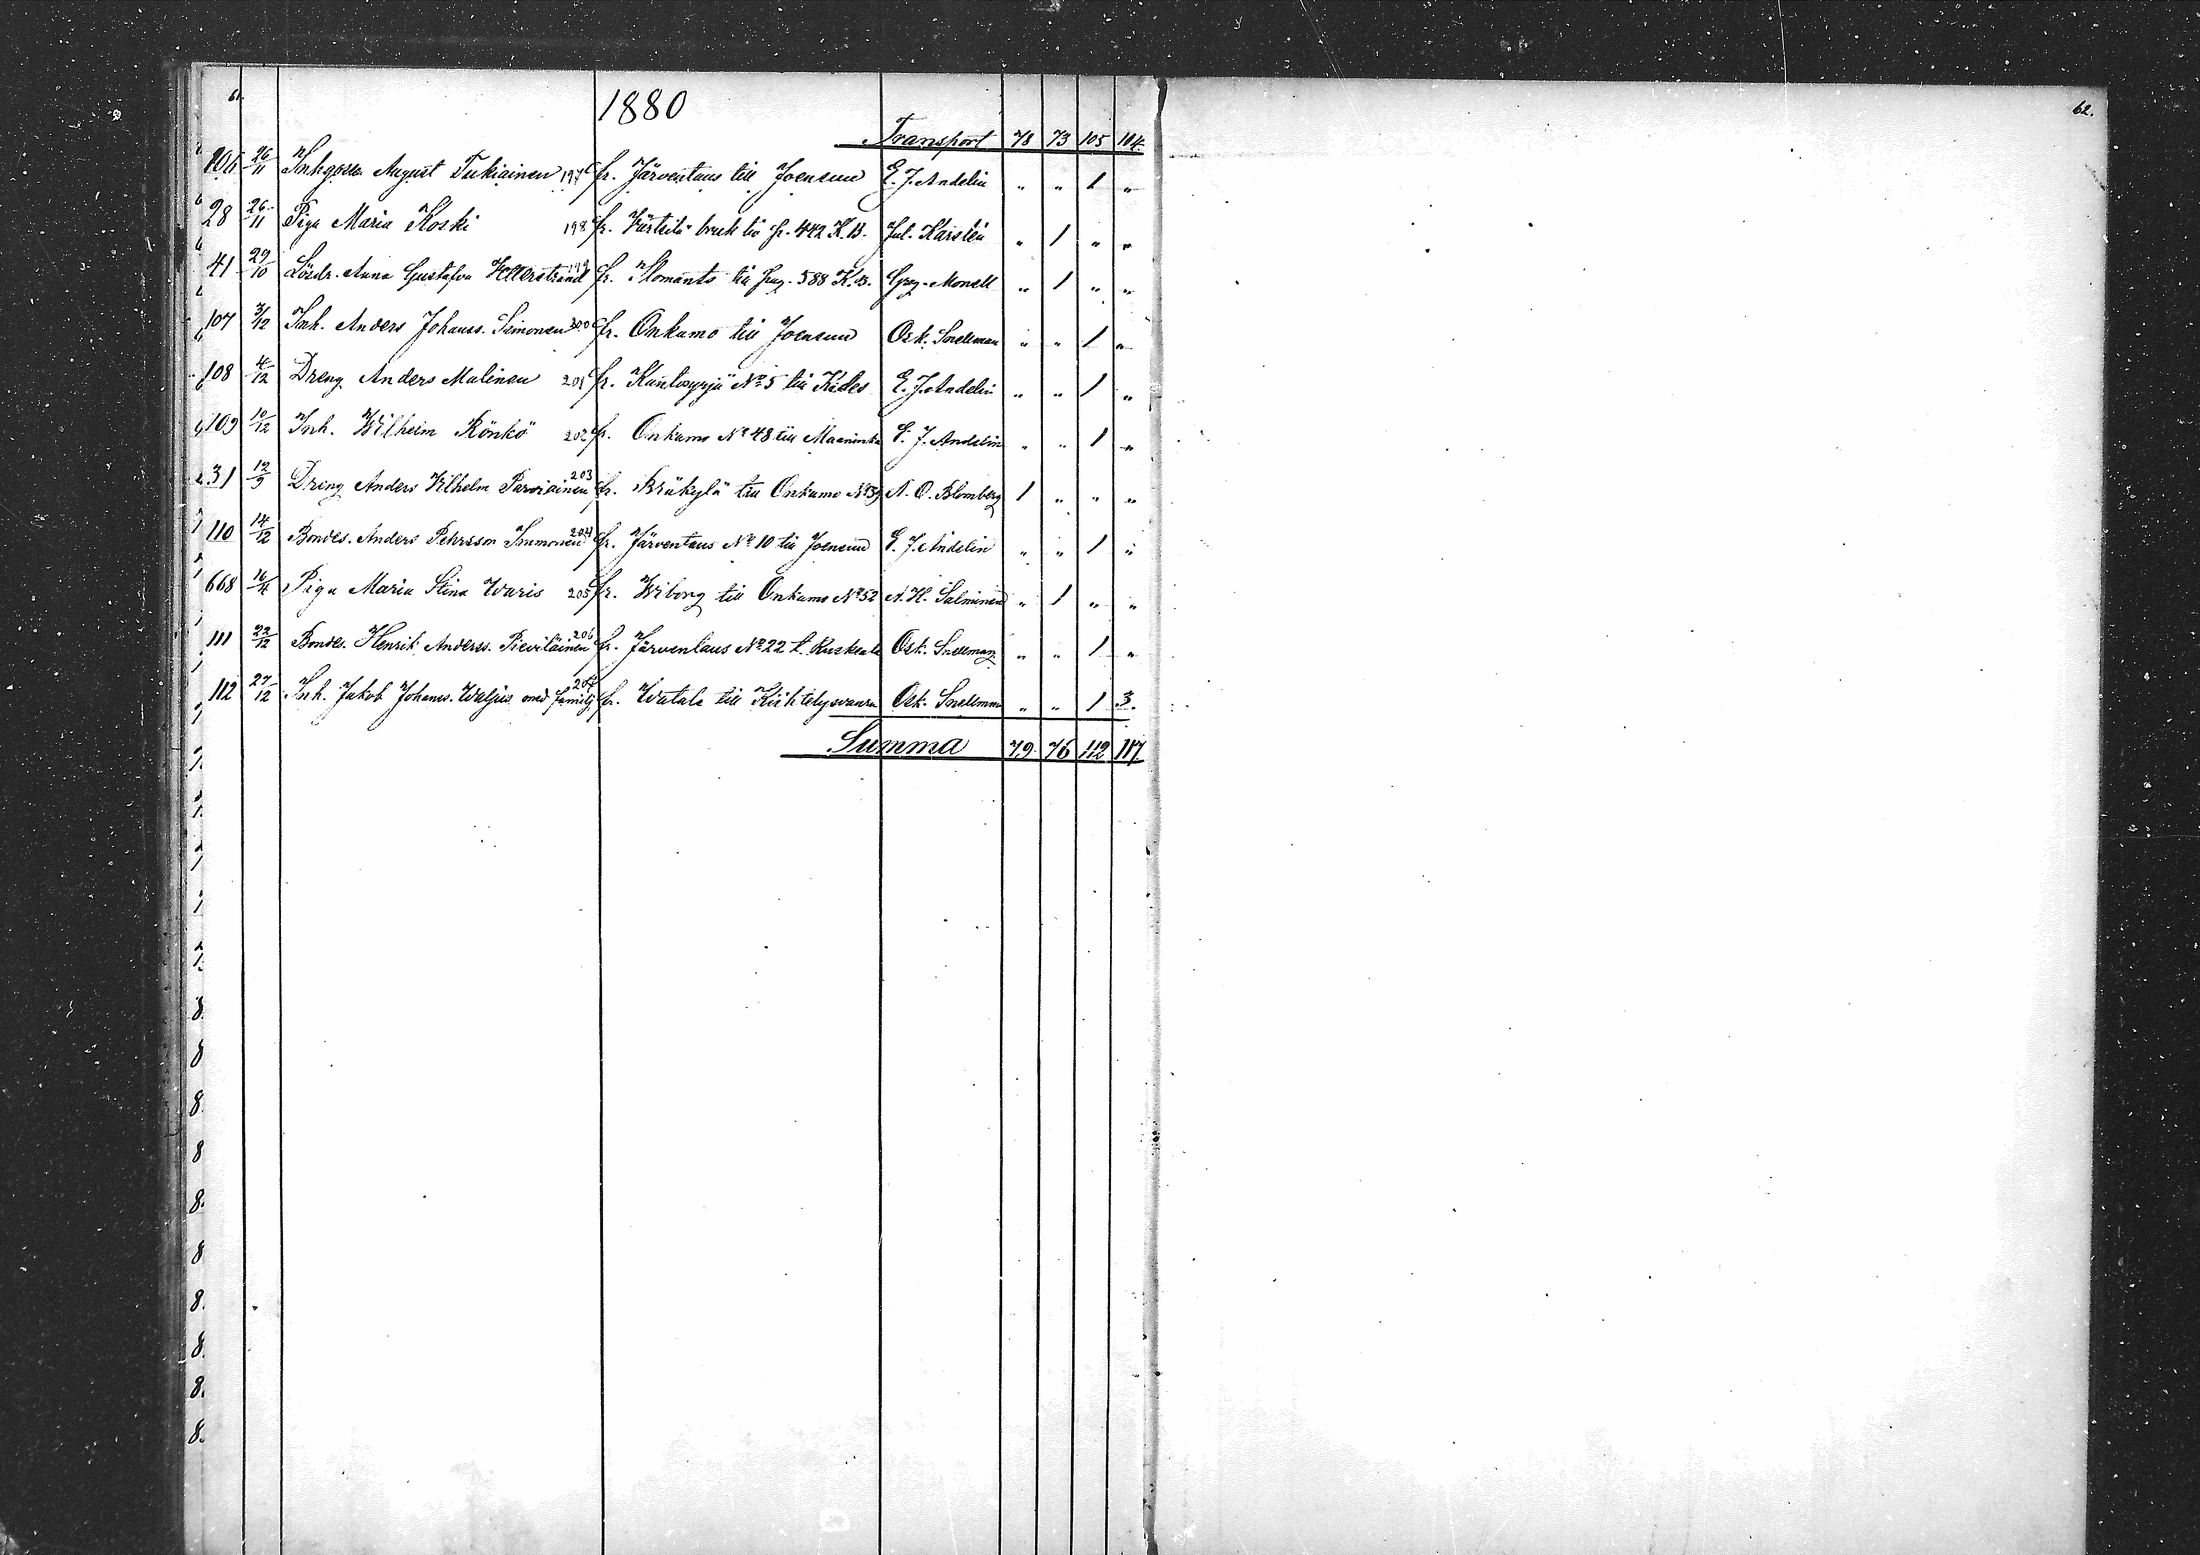 61.
1880
62.
Transport 78 73 105 114.
106 26/11 Inhgosse August Tukiainen 197 fr. Järventaus till Joensuu E. J. Andelin " " 1 "
28 26/11 Piga Maria Koski 198 fr. Värtsilä bruk till fr. 442 K.B. Jul. Karstén " 1 " "
41 29/10 Lösdr. Anna Gustafva Vetterstrand 199 fr. Ilomants till pag. 588 K.B. Greg. Monell " 1 " "
107 3/12 Inh. Anders Johanss. Simonen 200 fr. Onkamo till Joensuu Osk. Snellman " " 1 "
108 4/12 Dreng Anders Malinen 201 fr. N:o 5 till Kides E. J. Andelin " " 1 "
109 10/12 Inh. Wilhelm Rönkö 202 fr. Onkamo N:o 48 till Maaninka E. J. Andelin " " 1 "
31 12/9 Dreng Anders Vilhelm Parviainen 203 fr. Bräkylä till Onkamo N:o 39 A. O. Blomberg 1 " " "
110 14/12 Bondes. Anders Pehrsson Immonen 204 fr. Järventaus N:o 10 till Joensuu E. J. Andelin " " 1 "
668 16/11 Piga Maria Stina Waris 205 fr. Wiborg till Onkamo N:o 52 A. H. Salminen " 1 " "
111 22/12 Bondes. Henrik Anderss. Pieviläinen 206 fr. Järventaus N:o 22 t. Ruskeala Osk. Snellman " " 1 "
112 27/12 Inh. Jakob Johanss. Waljus med familj 207 fr. Watala till Kiihtelysvaara Osk. Snellman " " 1 3.
Summa 79. 76 112 117.